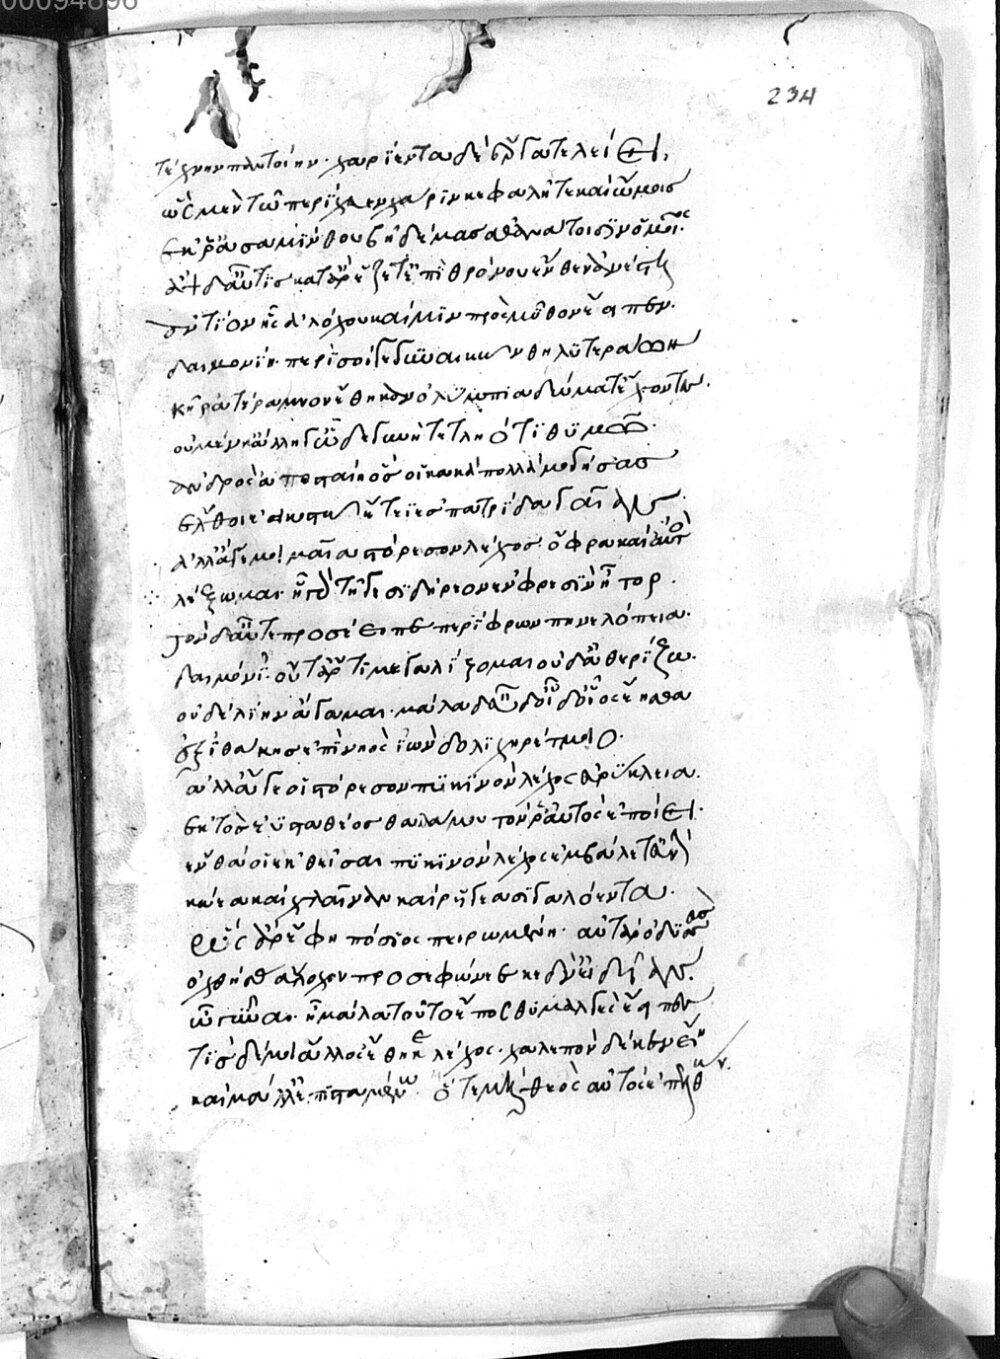 00094896
234
τέχνην παντοίην· χαρίεντα δὲ ἔργα τελείει,
ὣς μὲν τῶ περίχευε χάριν κεφαλῆ τε καὶ ὤμοις
ἐκ ῥ' ἀσαμίνθου βῆ δέμας ἀθανάτοισιν ὅμοιος·
ἂψ δ' αὖτις κατ' ἄρ' ἕζετ' ἐπὶ θρόνου ἔνθεν ἀνέστη
ἀντίον ἧς ἀλόχου καί μιν πρὸς μῦθον ἔειπεν·
δαιμονίη· περὶ σοί γε γυναικῶν θηλυτεράων
κῆρ ἀτέραμνον ἔθηκαν ὀλύμπια δώματ' ἔχοντες·
οὐ μέν κ' ἄλλη γ' ὧδε γυνὴ τετληότι θυμῶ·
ἀνδρὸς ἀποσταίη ὅς οἱ κακὰ πολλὰ μογήσας
ἔλθοι ἐεικοστῶ ἔτεϊ ἐς πατρίδα γαῖαν·
ἀλλ' ἄγε μοι μαῖα στόρεσον λέχος· ὄφρα καὶ αὐτὸς
λέξομαι· ἦ γὰρ τῆγε σιδήρεον ἐν φρεσὶν ἦτορ·
τὸν δ' αὖτε προσέειπε περίφρων πηνελόπεια·
δαιμόνι'· οὔτ' ἄρ τι μεγαλίζομαι οὐδ' ἀθερίζω·
οὐδὲ λίην ἄγαμαι· μάλα δ' εὖ οἶδ' οἷος ἔησθα
ἐξ ἰθάκης ἐπὶ νηὸς ἰὼν δολιχηρέτμοιο·
ἀλλ' ἄγε οἱ στόρεσον πυκινὸν λέχος εὐρύκλεια·
ἐκτὸς ἐυσταθέος θαλάμου τόν ῥ' αὐτὸς ἐποίει·
ἔνθά οἱ ἐκθεῖσαι πυκινὸν λέχος ἐμβάλετ' εὐνὴν
κώεα καὶ χλαίνας καὶ ῥήγεα σιγαλόεντα·
ὣς ἄρ' ἔφη πόσιος πειρωμένη· αὐτὰρ ὀδυσσεὺς
ὀχθήσας ἄλοχον προσεφώνεε κεδνὰ ἰδυῖαν·
ὦ γύναι· ἦ μάλα τοῦτο ἔπος θυμαλγὲς ἔειπες
τίς δέ μοι ἄλλοσε θῆκε λέχος· χαλεπὸν δέ κεν εἴη
καὶ μάλ' ἐπισταμένω· ὅτε μὴ θεὸς αὐτὸς ἐπελθὼν·